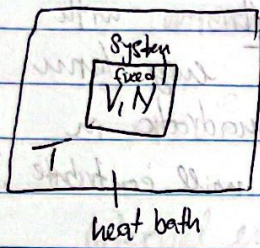 System
fixed
V, N
T
heat bath